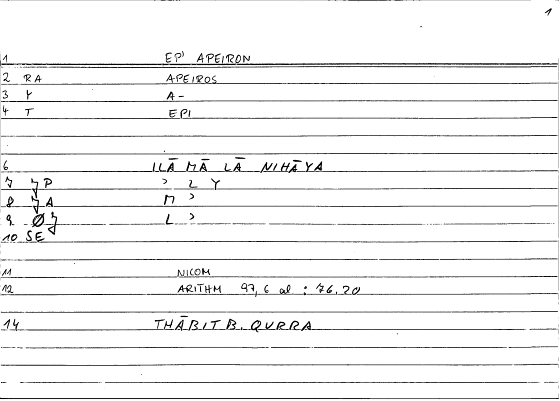 1
1 EP' APEIRON
2 RA APEIROS
3 Y A-
4 T EPI
6 ILĀ MĀ LĀ NIHĀYA
7 P ʾ L Y
8 A M ʾ
9 Ø L ʾ
10 SE
11 NICOM
12 ARITHM 97,6 al : 76.20
14 THĀBIT B. QURRA